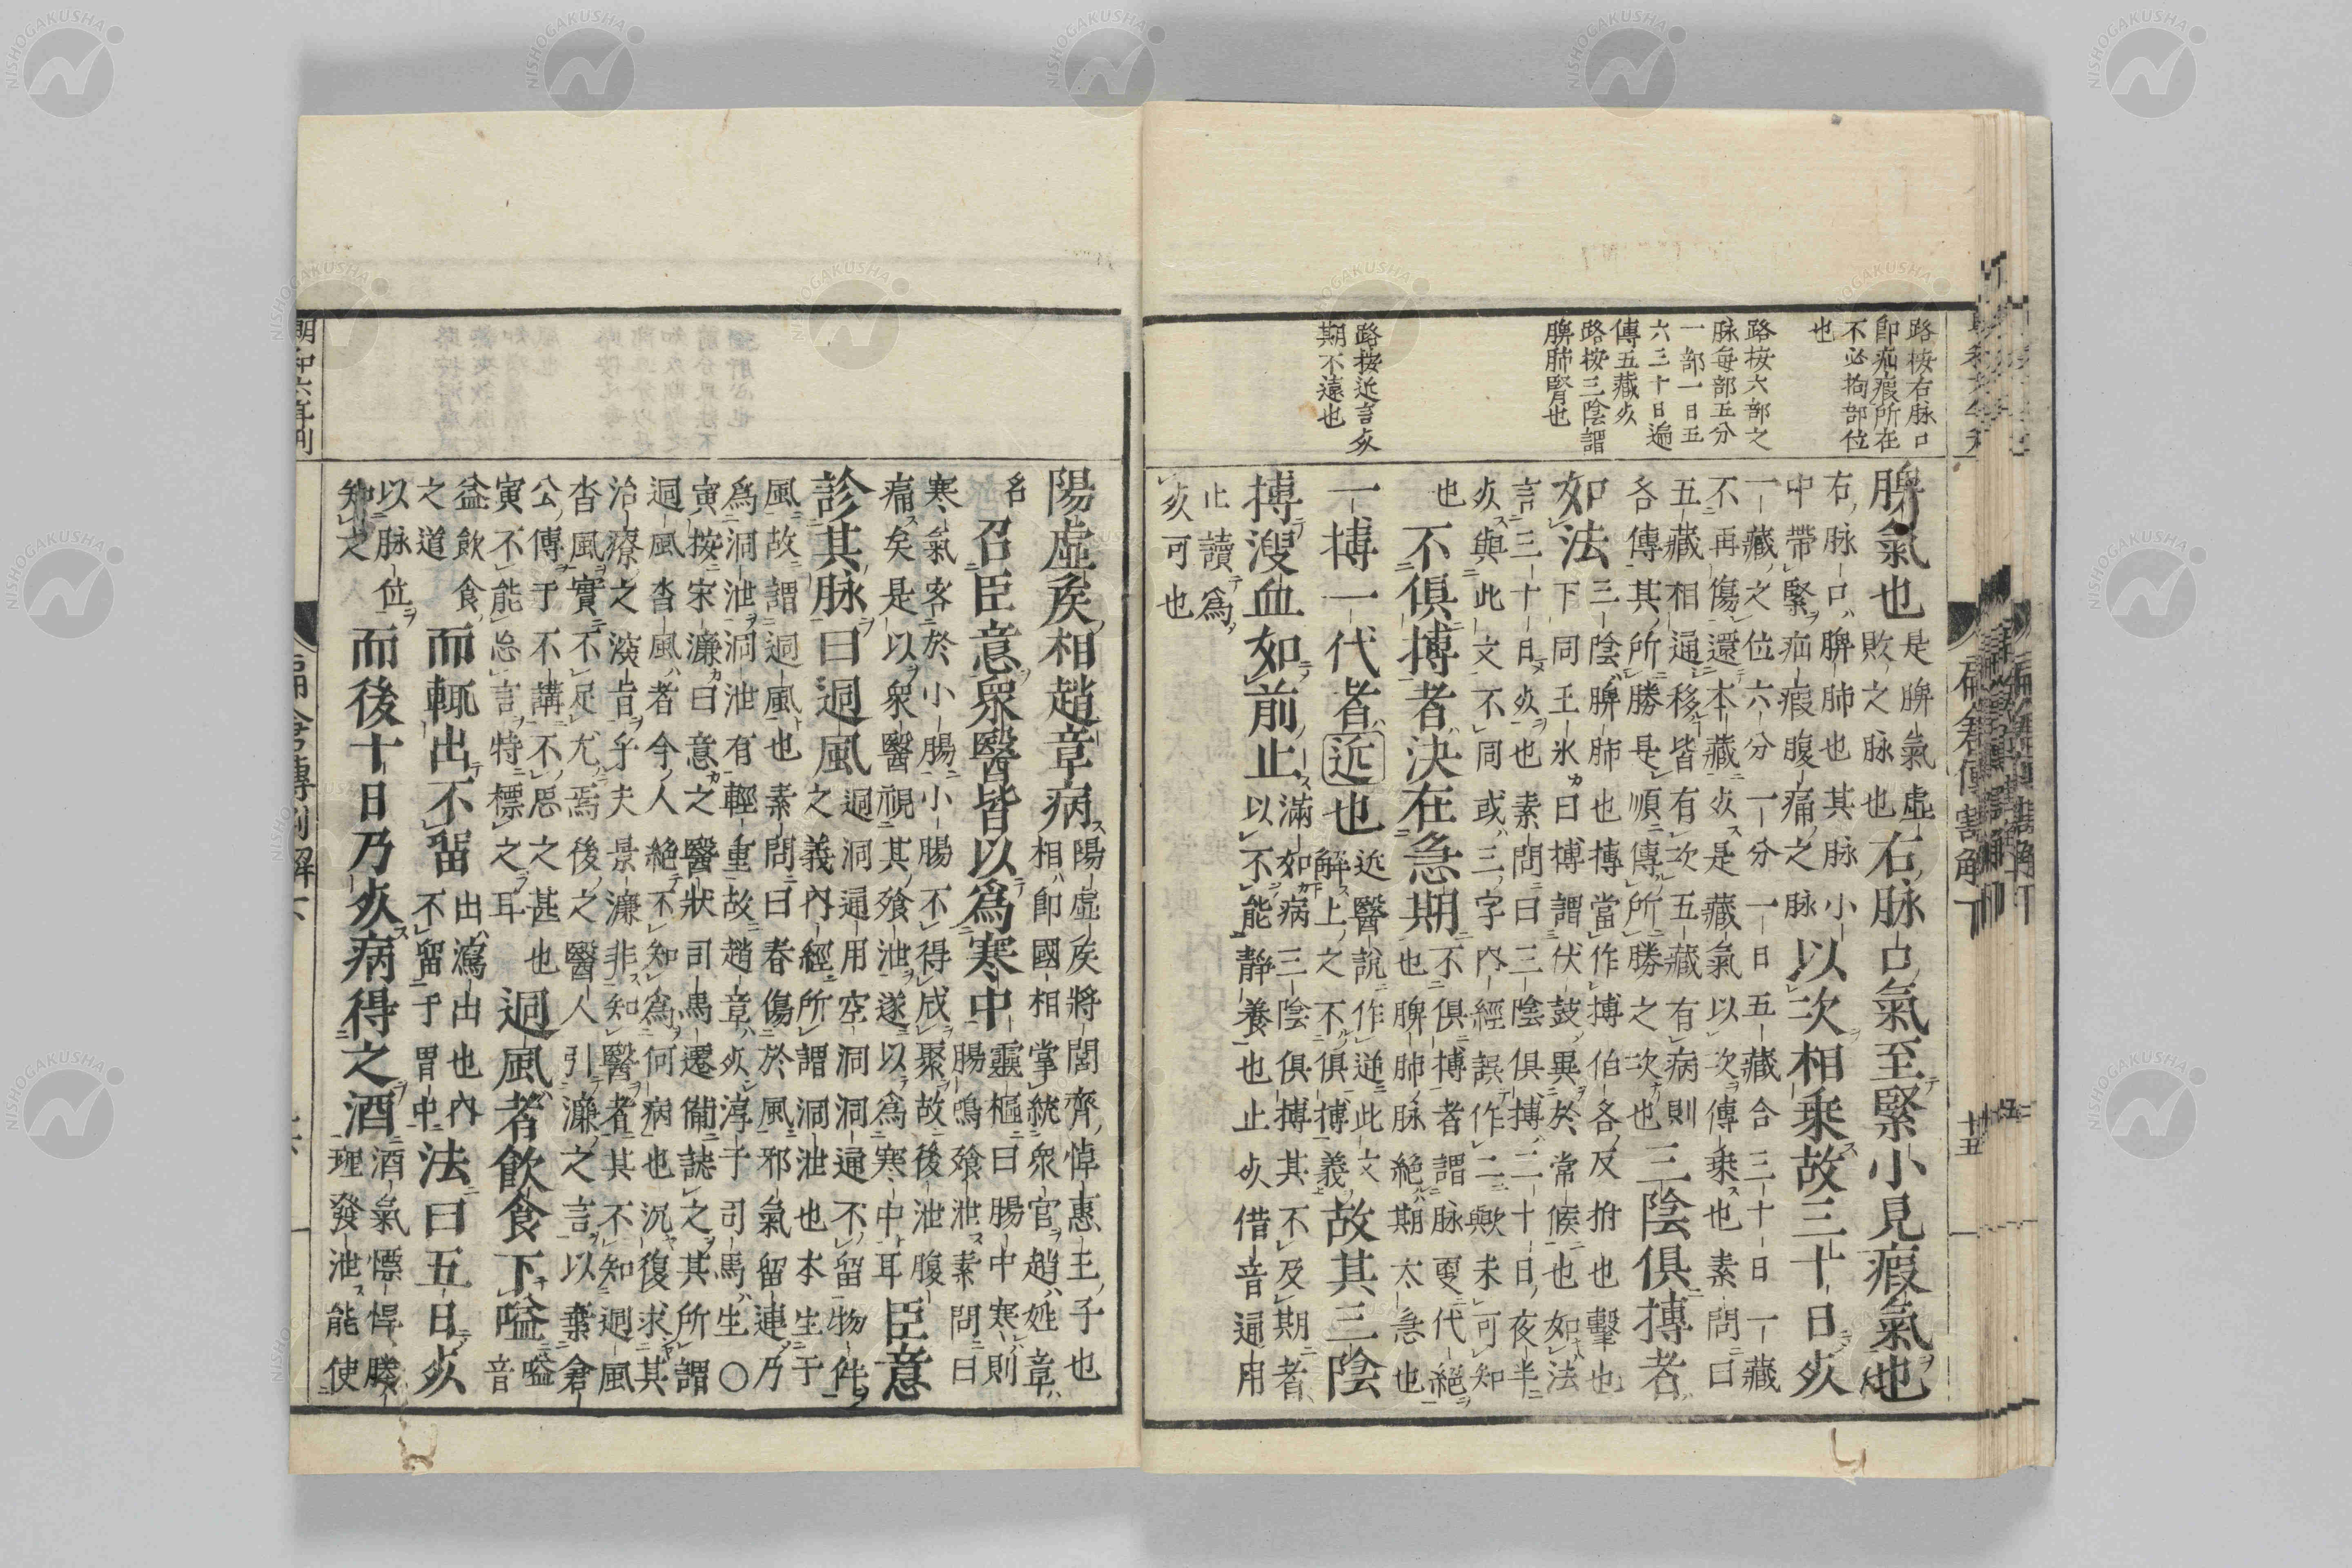 路按右脉口
即疝瘕所在
不必拘部位
也
路按六部之
脉每部五分
一部一日五
六三十日遍
傳五藏歿
路按三陰謂
脾肺腎也
路按近言歿
期不遠也
脾氣也
是脾氣虛
敗之脉也
右脉口氣至緊小見瘕氣也
右脉口脾肺也其脉小
中帶緊疝瘕腹痛之脉
以次相乘故三十日歿
一藏之位六分一分一日五藏合三十日一藏
不再傷還本藏歿是藏氣以次傳乘也素問曰
五藏相通移皆有次五藏有病則
各傳其所勝是順傳所勝之次也
三陰俱搏者
如法
三陰脾肺也搏當作搏伯各反拊也擊也
下同王氷曰搏謂伏鼓異於常候也如法
言三十日歿也素問曰三陰俱搏二十日夜半
歿與此文不同或三字內經誤作二歟未可知
也
不俱搏者決在急期
不俱搏者謂脉更代絕
也脾肺脉絕期太急也
一搏一代者近也
近醫說作逆此文
解上之不俱搏義
故其三陰
搏溲血如前止
滿如病三陰俱搏其不及期者
以不能靜養也止歿借音通用
止讀爲
歿可也
十五
陽虛矦相趙章病
陽虛矦將閭齊悼惠王子也
相即國相掌統衆官趙姓章
名
召臣意衆醫皆以爲寒中
靈樞曰腸中寒則
腸鳴飱泄素問曰
寒氣客於小腸小腸不得成聚故後泄腹
痛矣是以衆醫視其飱泄遂以爲寒中耳
臣意
診其脉曰迵風
迵洞通用空洞洞通不留物件
之義內經所謂洞泄也本生于
風故謂迵風也素問曰春傷於風邪氣留連乃
爲洞泄洞泄有輕重故趙章歿淳于司馬生〇
寅按宋濂曰意之醫狀司馬遷備誌之其所謂
迵風沓風者今人絶不知爲何病也沉復求其
治療之淡旨乎夫景濂非知醫者其不知迵風
沓風實不足尤焉後之醫人引濂之言以棄倉
公傳于不講不思之甚也
寅不能忽言特標之耳
迵風者飲食下嗌
嗌
音
益飲食
之道
而輒出不留
出瀉出也內
不留于胃中
法曰五日歿
以脉位
知之
而後十日乃歿病得之酒
酒氣慓悍勝
理發泄能使
明和六年刊